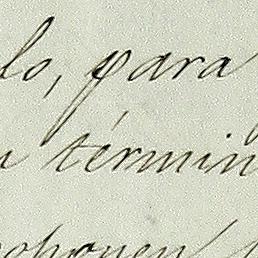 lo, para
a términ